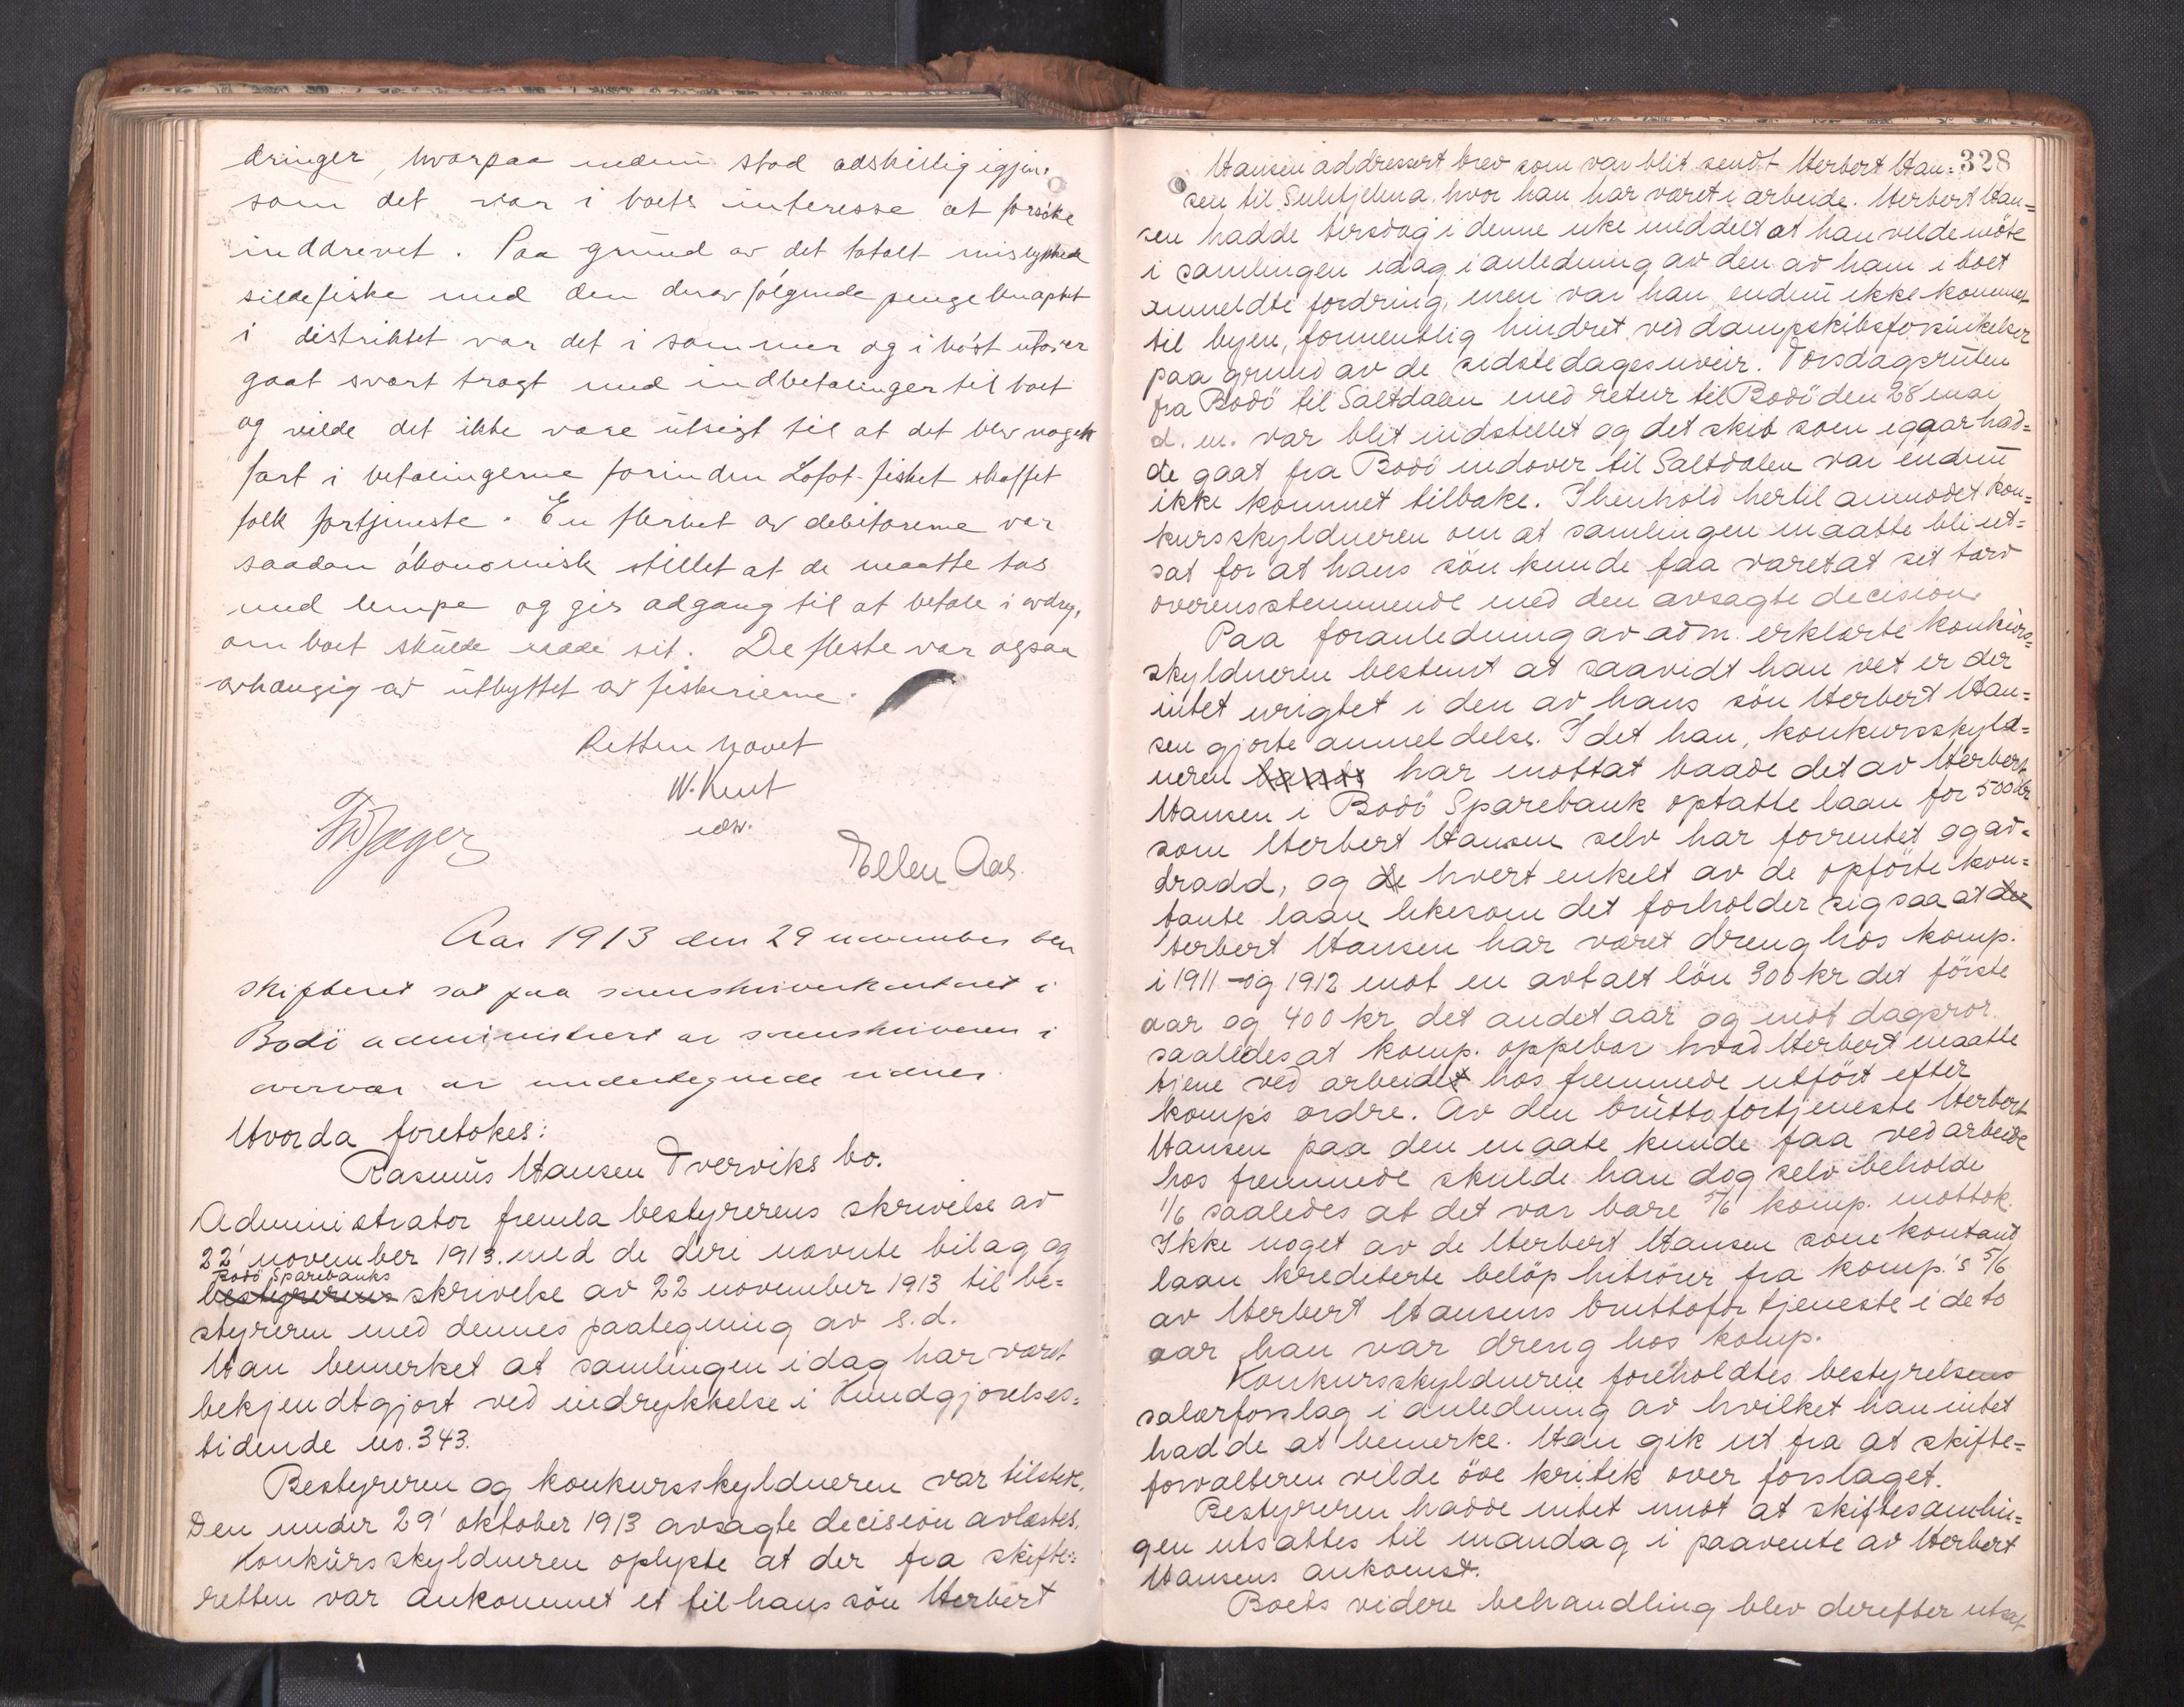 dringer, hvorpaa endnu stod adskillig igjen,
som det var i boets interesse at forsøke
inddrevet. Paa grund av det totalt mislykkede
sildefiske med den derav følgende pengeknaphet
i distriktet var det i sommer og i høst
gaat svært tragt med indbetalinger til boet
og vilde det ikke være utsigt til at det blev noget
fart i betalingerne forinden Lofot-fisket skaffet
folk fortjeneste. En flerhet av debitorerne var
saadan økonomisk stillet at de maatte tas
med lempe og gis adgang til at betale i avdrag,
om boet skulde naa sit. De fleste var ogsaa
avhængig av utbyttet av fiskerierne.
Retten hævet
W. Knut
edsv.
Th Jæger
Ellen Aas.
Aar 1913 den 29 november blev
skifteret sat paa sorenskriverkontoret i
Bodö administrert av sorenskriveren i
overvær av undertegnede vidner.
Hvorda foretokes:
Rasmus Hansen Tverviks bo.
Administrator fremla bestyrerens skrivelse av
22' november 1913 med de deri nævnte bilag og
Bodö Sparebanks
bestyrerens skrivelse av 22 november 1913 til be=
styreren med dennes paategning av s.d.
Han bemerket at samlingen idag har været
bekjendtgjort ved indrykkelse i Kundgjørelses=
tidende no. 343.
Bestyreren og konkursskyldneren var tilstede.
Den under 29' oktober 1913 avsagte decision avlæstes.
Konkursskyldneren oplyste at der fra skifte=
retten var ankommet et til hans sön Herbert
328
Hansen addressert brev som var blit sendt Herbert Han=
sen til Sulitjelma, hvor han har været i arbeide. Herbert Han=
sen hadde tirsdag i denne uke meddelt at han vilde möte
i samlingen idag i anledning av den av ham i boet
anmeldte fordring, men var han endnu ikke kommet
til byen, formentlig hindret ved dampskibsforsinkelser
paa grund av de sidste dages uveir. Torsdagsruten
fra Bodö til Saltdalen med retur til Bodö den 28' mai
d. m. var blit indstillet og det skib som igaar had=
de gaat fra Bodö indover til Saltdalen var endnu
ikke kommet tilbake. I henhold hertil anmodet kon=
kursskyldneren om at samlingen maatte bli ut=
sat for at hans sön kunde faa varetat sit tarv
overensstemmende med den avsagte decision.
Paa foranledning av adm. erklærte konkurs=
skyldneren bestemt at saavidt han vet er der
intet urigtet i den av hans sön Herbert Han=
sen gjorte anmeldelse. I det han, konkursskyld=
neren har mottat baade det av Herbert
Hansen i Bodö Sparebank optatte laan for 500 kr
som Herbert Hansen selv har forrentet og av=
dradd, og de hvert enkelt av de opförte kon=
tante laan likesom det forholder sig saa at der
Herbert Hansen har været dreng hos komp.
i 1911 og 1912 mot en avtalt lön 300 kr det förste
aar og 400 kr det andet aar og mot dagsror.
saaledes at komp. oppebar hvad Herbert maatte
tjene ved arbeidet hos fremmede utfört efter
komp's ordre. Av den bruttofortjeneste Herbert
Hansen paa den maate kunde faa ved arbeide
hos fremmede skulde han dog selv beholde
1/6 saaledes at det var bare 5/6 komp. mottok.
Ikke noget av de Herbert Hansen som kontant
laan krediterte belöp hitrörer fra komp.'s 5/6
av Herbert Hansens bruttofortjeneste i de to
aar han var dreng hos komp.
Konkursskyldneren foreholdtes bestyrelsens
salærforslag i anledning av hvilket han intet
hadde at bemerke. Han gik ut fra at skifte=
forvalteren vilde öve kritik over forslaget.
Bestyreren hadde intet mot at skiftesamlin=
gen utsattes til mandag i paavente av Herbert
Hansens ankomst.
Boets videre behandling blev derefter utsat